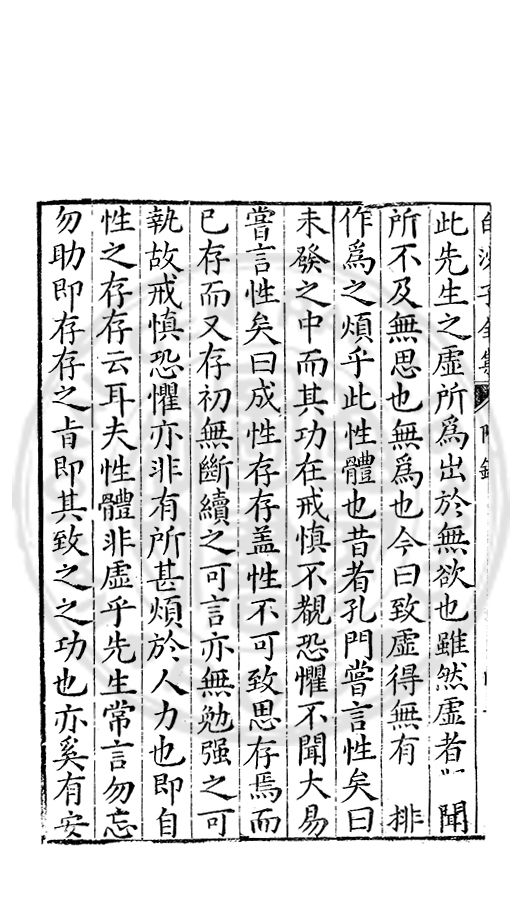 白沙子全集 附錄
此先生之虛所爲出於無欲也雖然虛者 聞
所不及無思也無爲也今曰致虛得無有 排
作爲之煩乎此性體也昔者孔門嘗言性矣曰
未發之中而其功在戒慎不覩恐懼不聞大易
嘗言性矣曰成性存存盖性不可致思存焉而
已存而又存初無斷續之可言亦無勉强之可
執故戒慎恐懼亦非有所甚煩於人力也即自
性之存存云耳夫性體非虛乎先生常言勿忘
勿助即存存之旨即其致之之功也亦奚有安